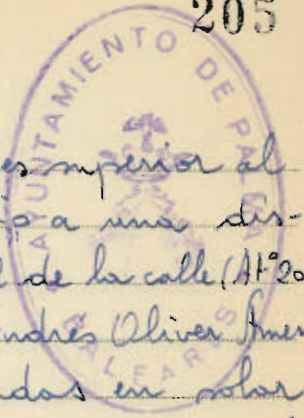 205
AYUNTAMIENTO DE PALMA
BALEARES
es superior al
a una dis-
l de la calle, (Atº 20
ndrés Oliver Amen
das en solar